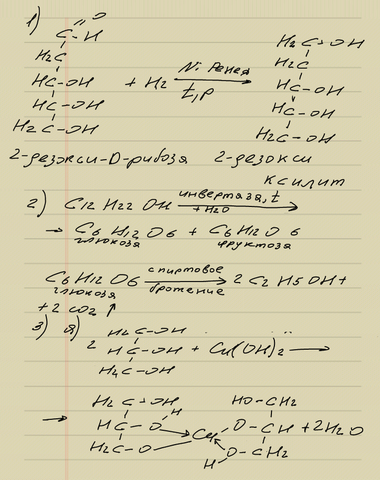 1)
O
C-H
H2C
HC-OH + H2 Ni Ренея t,p
HC-OH
H2C-OH
H2C-OH
H2C
HC-OH
HC-OH
H2C-OH
2-дезокси-D-рибоза 2-дезокси
ксилит
2) C12 H22 OH инвертаза, t
+H2O
→ C6 H12 O6 + C6H12O6
глюкоза фруктоза
C6H12O6 спиртовое 2 C2 H5OH+
глюкоза брожение
+2 CO2 ↑
3) а) H2C-OH
2 HC-OH + Cu(OH)2 →
H2C-OH
H2C-OH HO-CH2
H
→ HC-O Cu O-CH +2H2O
H2C-O O-CH2
H